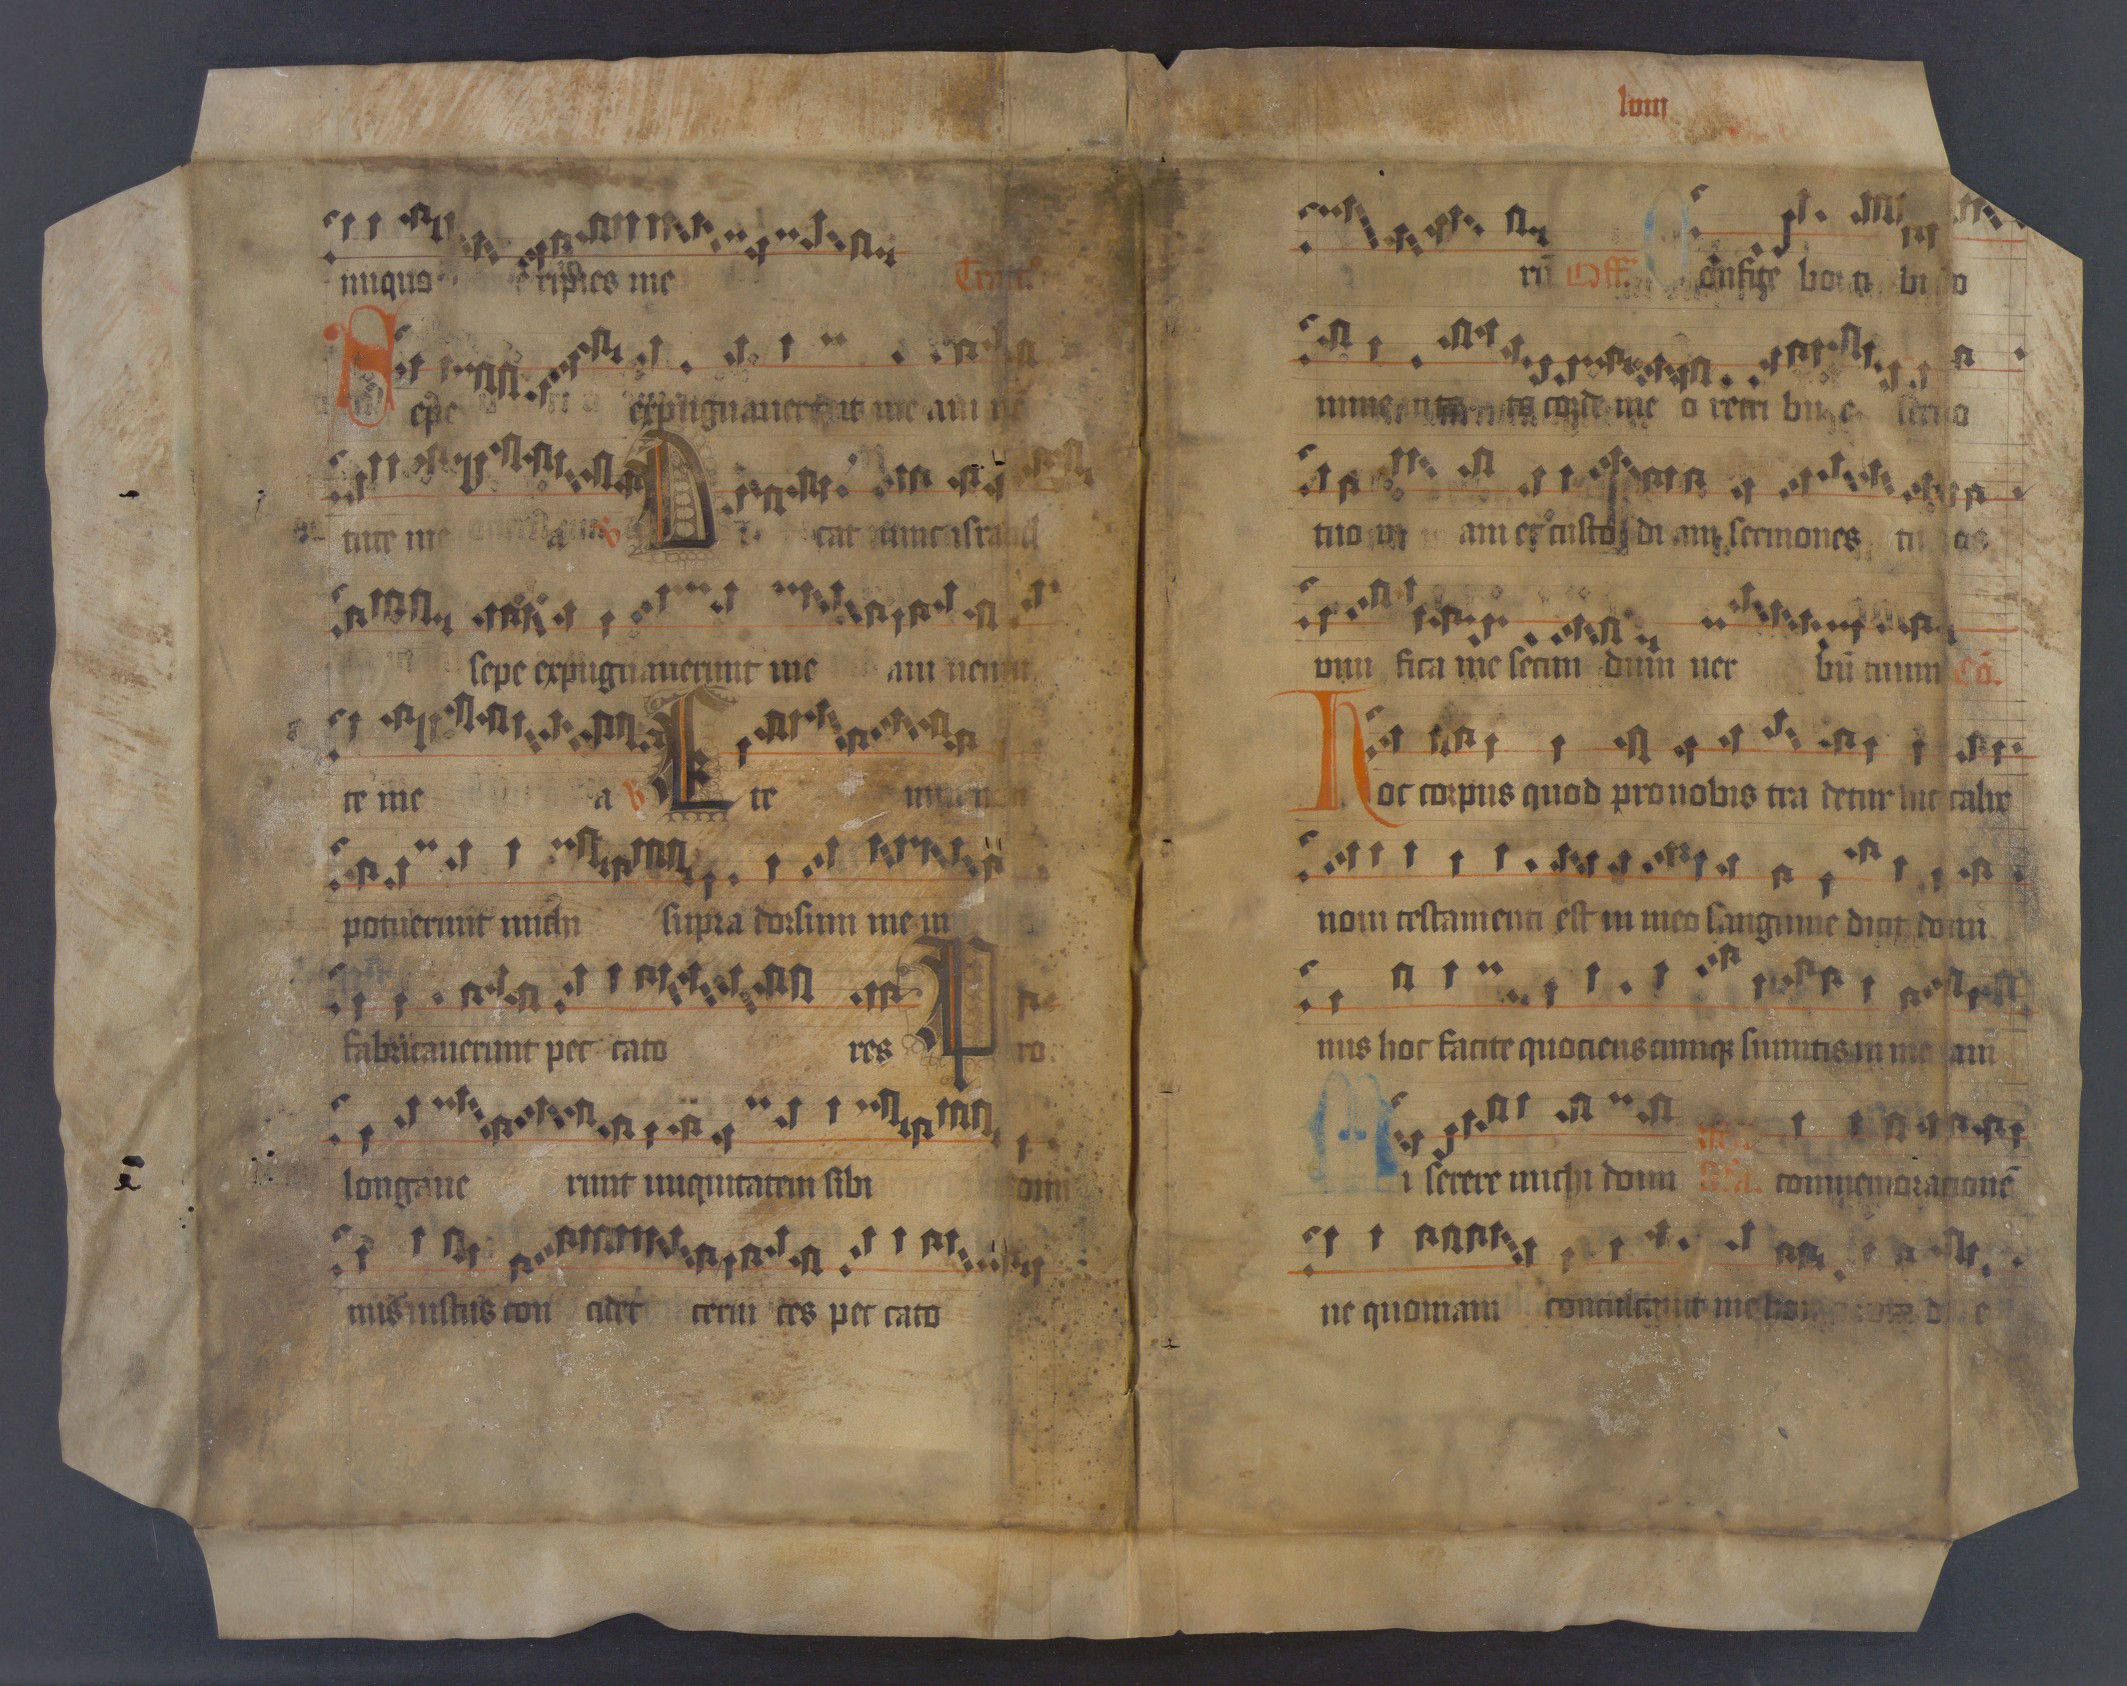 iniquo eripies me Tract̄
Sepe expugnauerunt me a iu ue
tute me a v̄ Dicat nunc israhel
sepe expugnauerunt me a iuuentu
te me a v̄ Etenim non
potuerunt michi supra dorsum meum
fabricauerunt peccatores Pro
longauerunt iniquitatem sibi domi
nus iustus concidet ceruices peccato
lviii
rū Off. Confitebor tibi do
mine in toto corde meo retribue seruo
tuo uiuam et custodiam sermones tuos
viuifica me secundum uerbū tuum Cō.
Hoc corpus quod pro uobis tradetur hic calix
noui testamenti est in meo sanguine dicit domi
nus hoc facite quocienscumq̄ sumitis in meam
Miserere michi domi commemoracionē
ne quoniam conculcauit me homo